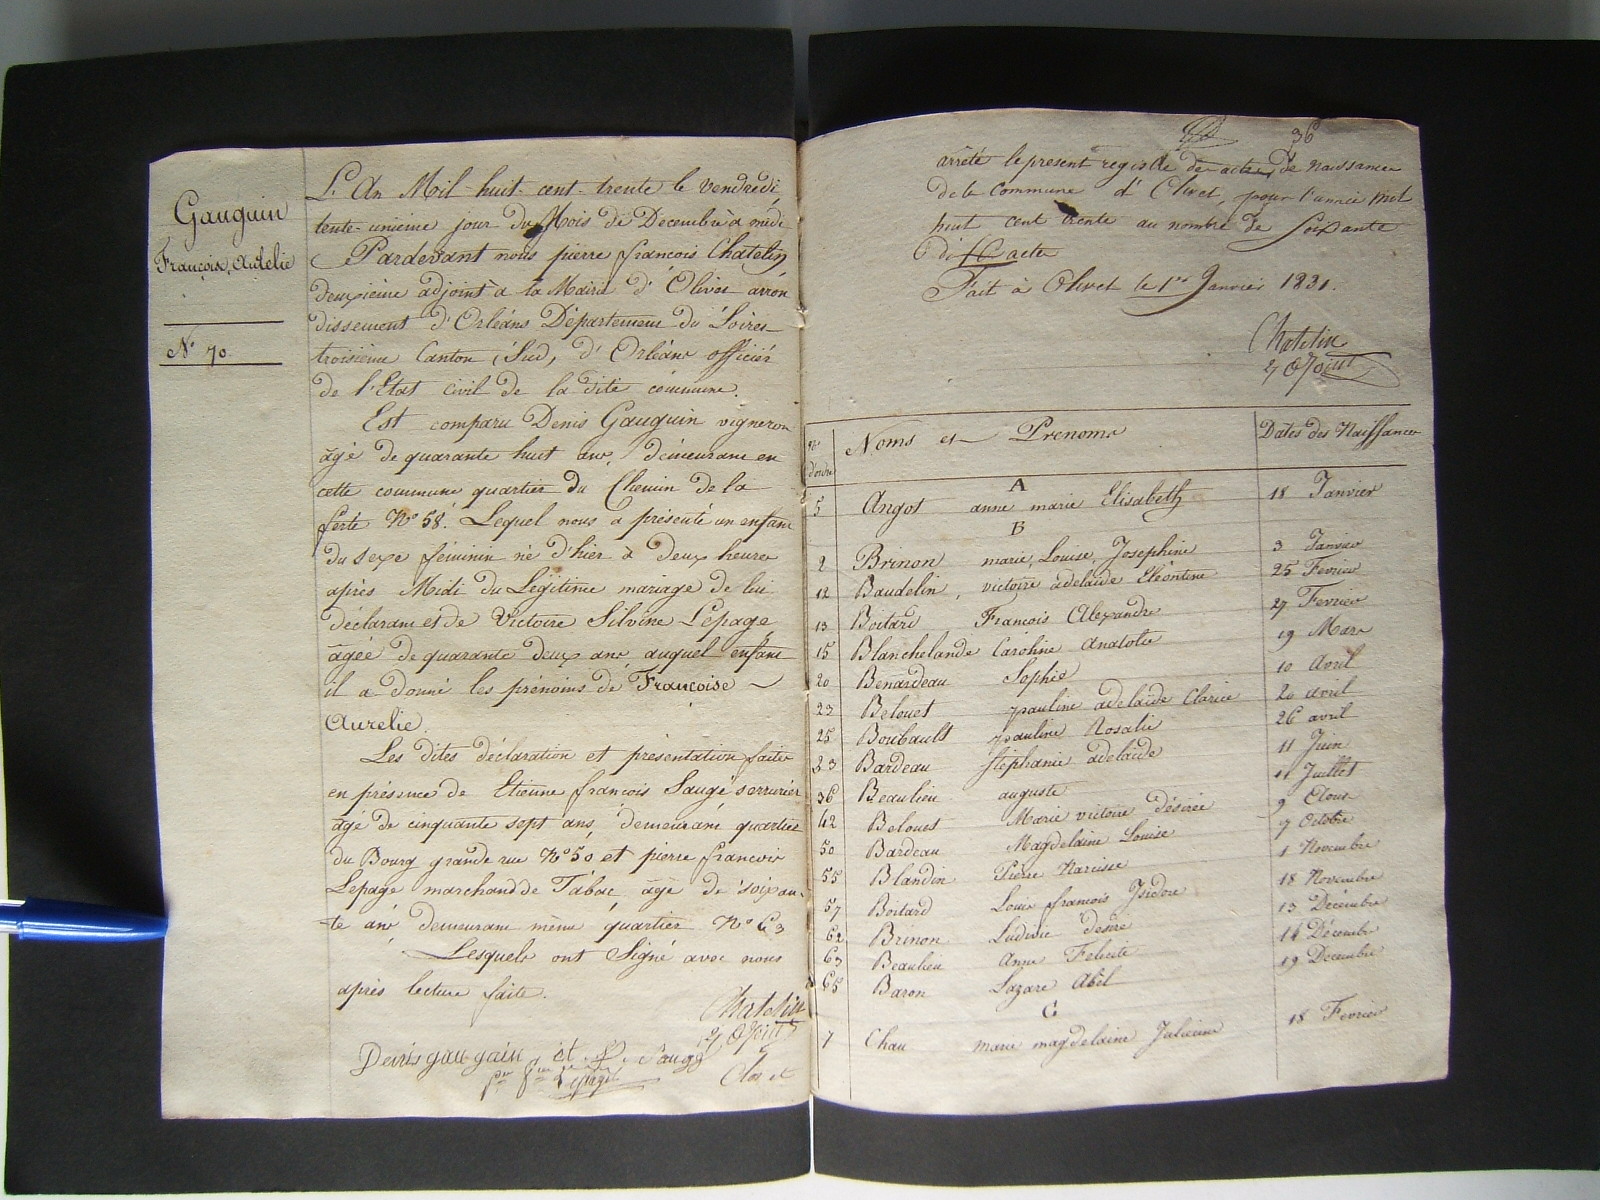 Gauguin
Françoise, Aurelie
N° 70.
L'An Mil-huit-cent-trente le Vendredi
trente-unieme jour du Mois de Decembre à midi
Pardevant nous pierre françois Chatelin
deuxieme adjoint à la Mairie d'Olivet arron
dissement d'Orléans Département du Loiret
troisieme Canton, Sud, d'Orléans officier
de l'Etat civil de la dite commune.
Est comparu Denis Gauguin vigneron
âgé de quarante huit ans, demeurant en
cette commune quartier du Chemin de la
ferté N° 58. Lequel nous a présenté un enfant
du sexe féminin né d'hier à deux heures
après Midi du Légitime mariage de lui
déclarant et de Victoire Silvine Lepage
âgée de quarante deux ans, auquel enfant
il a donné les prénoms de Françoise
Aurelie.
Les dites déclaration et présentation faites
en présence de Etienne françois Saugé serrurier
âgé de cinquante sept ans, demeurant quartier
du Bourg grande rue N° 50 et pierre francois
Lepage marchand de Tabac, âgé de soixan-
te ans demeurant même quartier N° 63
Lesquels ont Signé avec nous
après lecture faite.
Chatelin
2e adjoint
Denis gaugain et Saugé
Lepage
Clos et
36
arrêté le present registre des actes de Naissance
de la Commune d'Olivet, pour l'année mil
huit cent trente au nombre de Soixante
dix actes
Fait à Olivet le 1er Janvier 1831.
Chatelin
2e adjoint
No d'ordre Noms et Prenoms Dates des Naissances
A
5 Angot anne marie Elisabeth 18 Janvier
B
2 Brinon marie, Louise, Josephine 3 Janvier
12 Baudelin, victoire adelaide Eléontine 25 Fevrier
13 Boitard François Alexandre 27 Fevrier
15 Blanchelande Caroline Anatolie 19 Mars
20 Benardeau Sophie 10 Avril
23 Belouet pauline adelaide Clarice 20 avril
25 Boubault pauline Rosalie 26 avril
33 Bardeau Stéphanie adelaide 11 Juin
36 Beaulieu auguste 11 Juillet
42 Belouet Marie victoire désirée 9 Aout
50 Bardeau Magdelaine Louise 9 Octobre
55 Blandin Pierre Narcisse 1 Novembre
57 Boitard Louis françois Isidore 18 Novembre
62 Brinon Ludovic désiré 13 Décembre
63 Beaulieu Anne Felicité 14 Décembre
65 Baron Lazare Abel 19 Decembre
C
7 Chau marie magdelaine Julienne 18 Fevrier